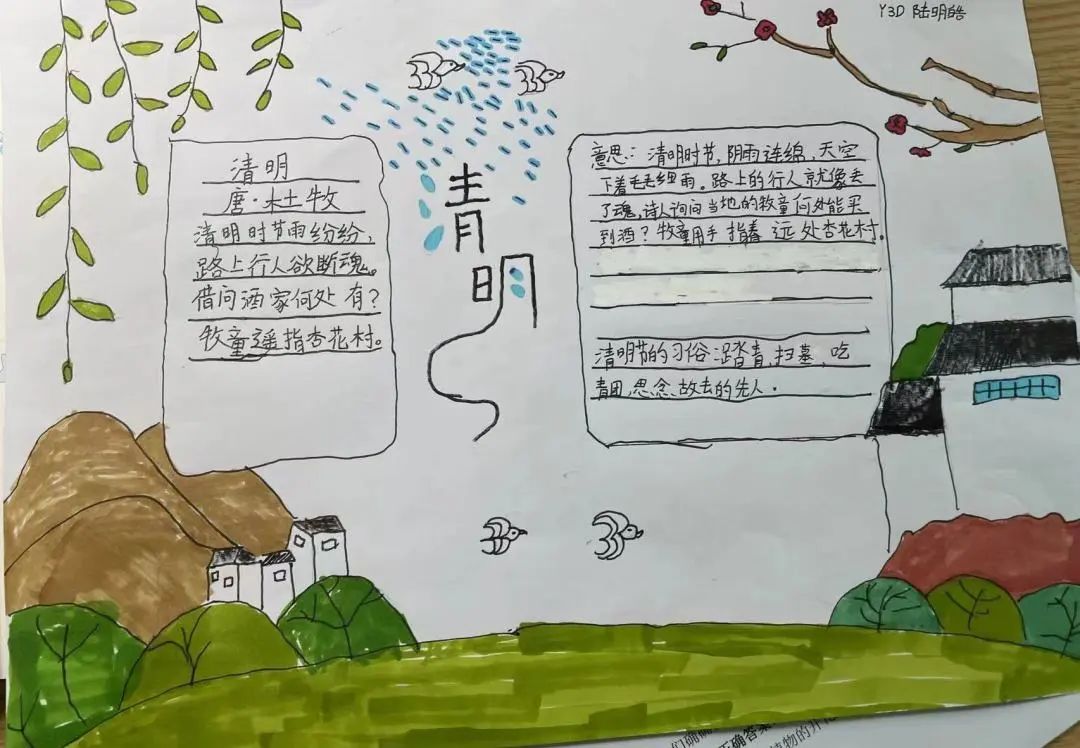 Y3D 陆明皓
清明
唐·杜牧
清明时节雨纷纷，
路上行人欲断魂。
借问酒家何处有？
牧童遥指杏花村。
清明
意思：清明时节，阴雨连绵，天空
下着毛毛细雨。路上的行人就像丢
了魂，诗人询问当地的牧童何处能买
到酒？牧童用手指着远处杏花村。
清明节的习俗：踏青、扫墓、吃
青团、思念、故去的先人.
正确答案
植物的开花